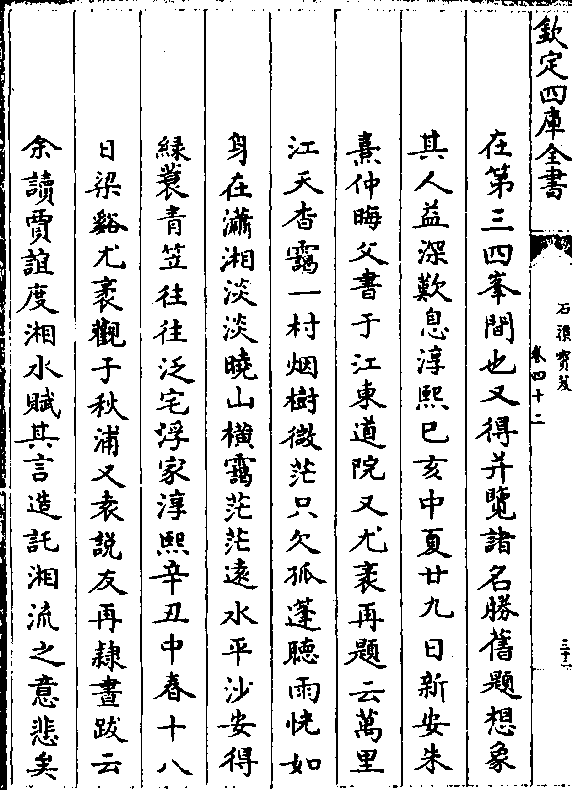 欽定四庫全書
石渠寶笈
卷四十二
三十二
在第三四峯間也又得并覽諸名勝舊題想象
其人益深歎息淳熙己亥中夏廿九日新安朱
熹仲晦父書于江東道院又尤袤再題云萬里
江天杳靄一村烟樹微茫只欠孤蓬聽雨恍如
身在瀟湘淡淡曉山横靄茫茫遠水平沙安得
緑蓑青笠往往泛宅浮家淳熙辛丑中春十八
日梁谿尤袤觀于秋浦又袁説友再隸書跋云
余讀賈誼度湘水賦其言造託湘流之意悲矣